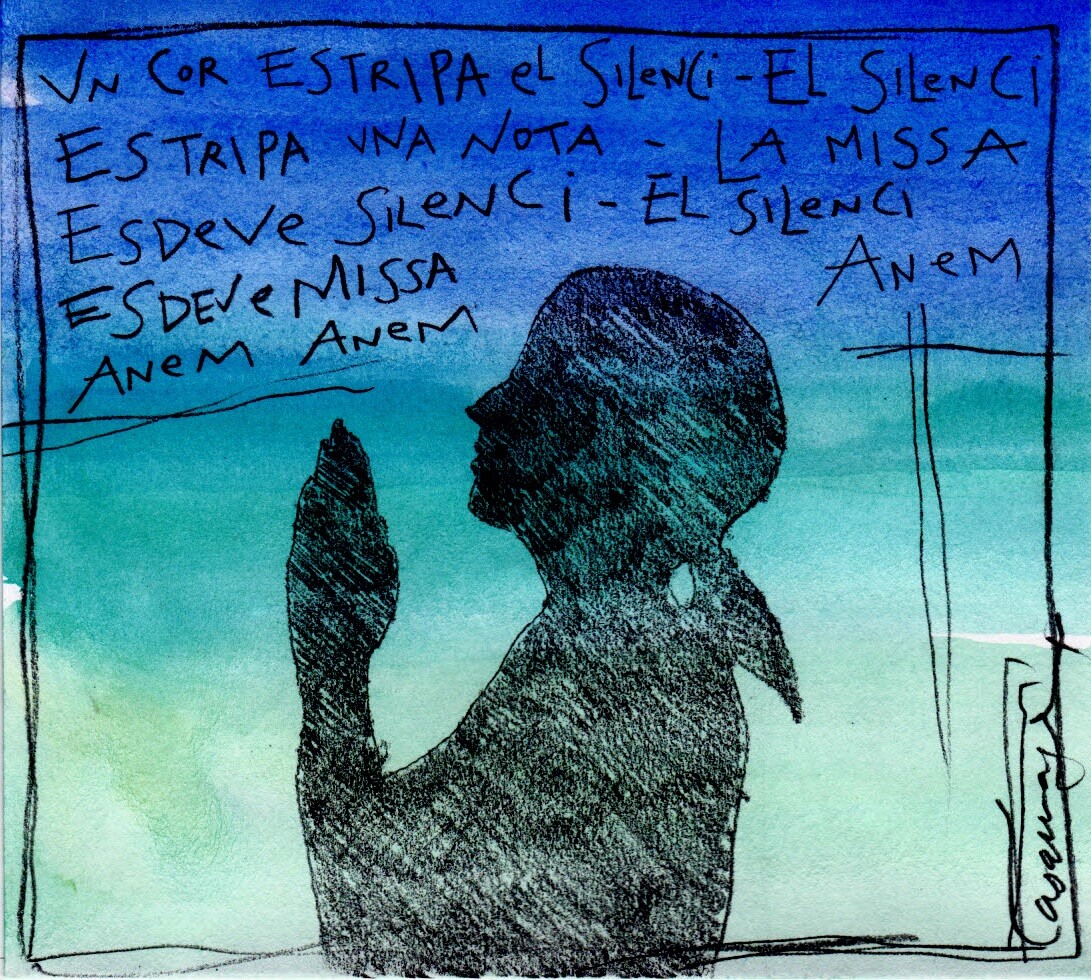 UN COR ESTRIPA eL SILeNCi - EL SILeNCi
ESTRIPA UNA NOTA - LA MISSA
ESDeVe SILeNCi - EL SILeNCi
ESDEVe MISSA
ANeM
ANeM ANeM